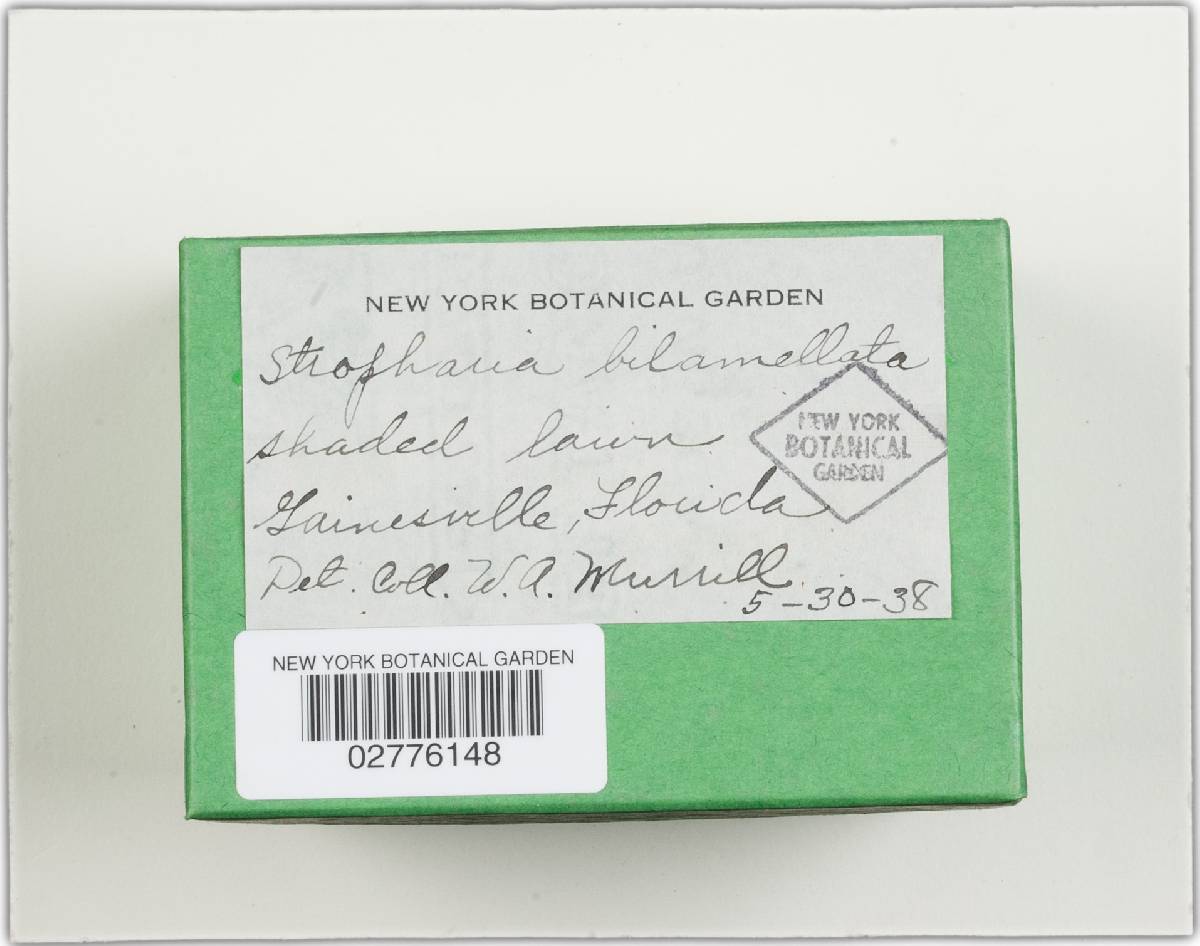 NEW YORK BOTANICAL GARDEN
Stropharia bilamellata
shaded lawn
NEW YORK
BOTANICAL
GARDEN
Gainesville, Florida
Det. Coll. W. A. Murrill
5-30-38
NEW YORK BOTANICAL GARDEN
02776148